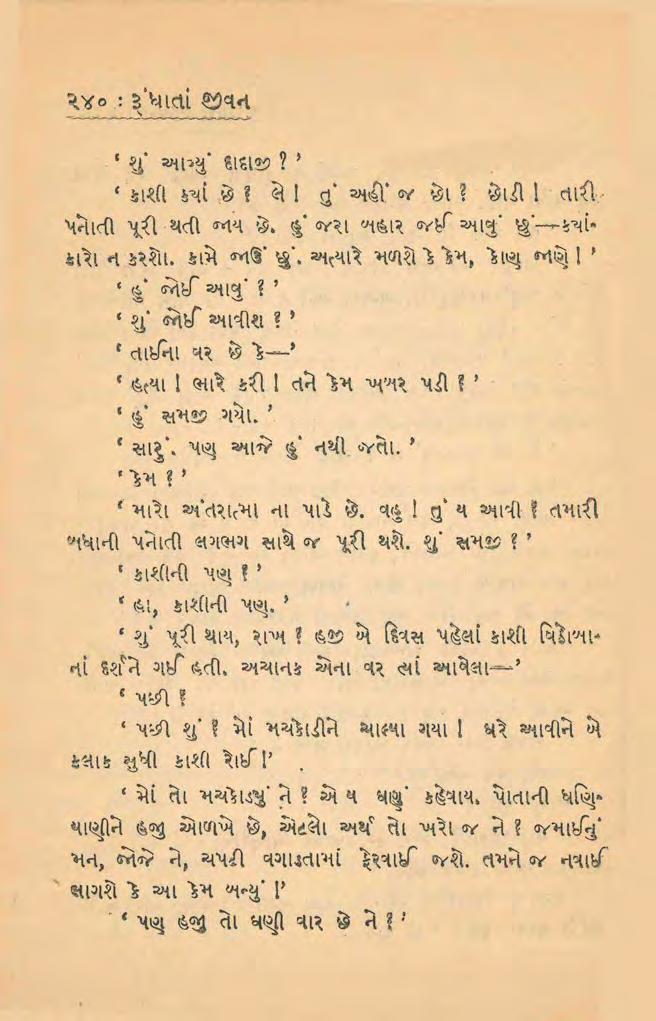 ૨૪૦ : રૂંધાતાં જીવન
‘ શું આગ્યું દાદાજી ? ’
‘ કાશી કયાં છે ? લે ! તું અહીં જ છો ? છોડી ! તારી
પનોતી પૂરી થતી જાય છે. હું જરા બહાર જઈ આવું છું—કયાં-
કારો ન કરશો. કામે જાઉં છું. અત્યારે મળશે કે કેમ, કોણ જાણે ! ’
‘ હું જોઈ આવું ? ’
‘ શું જોઈ આવીશ ? ’
‘ તાઈના વર છે કે—’
‘ હત્યા ! ભારે કરી ! તને કેમ ખબર પડી ? ’
‘ હું સમજી ગયો. ’
‘ સારું. પણ આજે હું નથી જતો. ’
‘ કેમ ? ’
‘ મારો અંતરાત્મા ના પાડે છે. વહુ ! તું ય આવી ? તમારી
બધાની પનોતી લગભગ સાથે જ પૂરી થશે. શું સમજી ? ’
‘ કાશીની પણ ? ’
‘ હા, કાશીની પણ. ’
‘ શું પૂરી થાય, રાખ ? હજી બે દિવસ પહેલાં કાશી વિઠોબા-
નાં દર્શને ગઈ હતી. અચાનક એના વર ત્યાં આવેલા—’
‘ પછી ?
‘ પછી શું ? મોં મચકોડીને ચાલ્યા ગયા ! ઘરે આવીને બે
કલાક સુધી કાશી રોઈ !’
‘ મોં તો મચકોડ્યું ને ? એ ય ઘણું કહેવાય. પોતાની ધણિ-
યાણીને હજી ઓળખે છે, એટલો અર્થ તો ખરો જ ને ? જમાઈનું
મન, જોજે ને, ચપટી વગાડતામાં ફેરવાઈ જશે. તમને જ નવાઈ
લાગશે કે આ કેમ બન્યું !’
‘ પણ હજુ તો ઘણી વાર છે ને ? ’